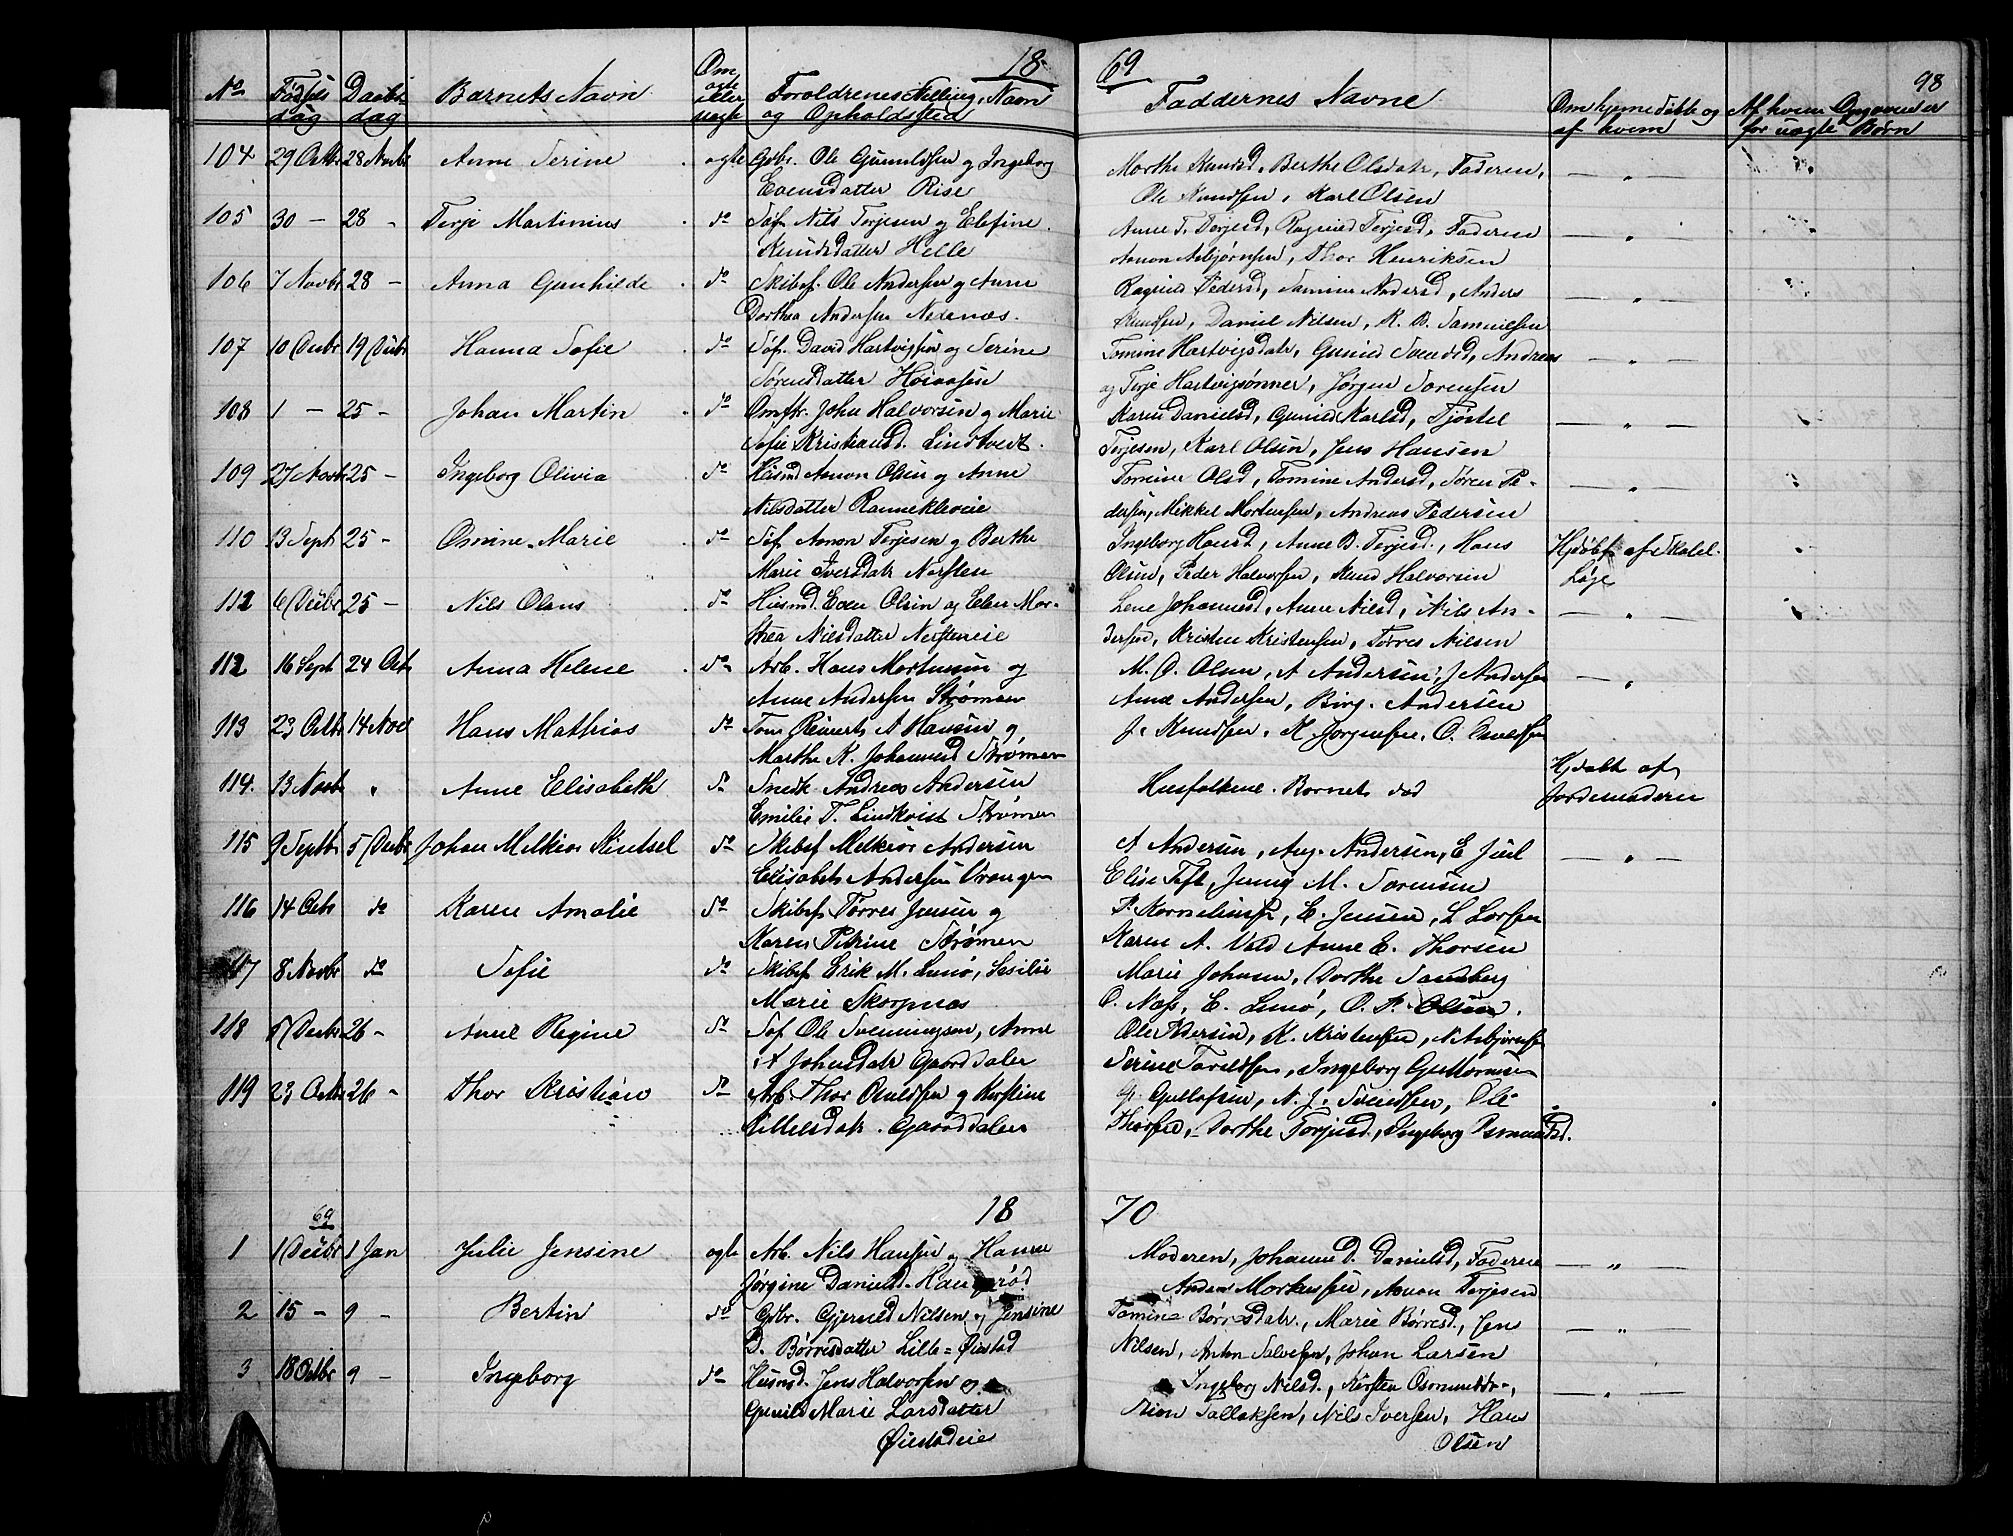 18 69
98
No Fødsels dag Daabs dag Barnets Navn Om ægte eller uægte Forældrenes Stilling, Navn og Opholdssted Faddernes Navne Om hjemmedøbt og af hvem Af hvem Opgaven er for uægte Børn
104 29 Octbr 28 Novbr Anne Serine ægte Gdbr. Ole Gunuldsen og Ingeborg Marthe Knudsd, Berthe Olsdatr, Faderen, — " —
Evensdatter Rise Ole Knudsen, Karl Olsen
105 30 - 28 - Terje Martinius do Søf. Nils Terjesen og Elefine Anne T. Terjesd, Ragnild Terjesd, Faderen — " —
Knudsdatter Helle Amon Asbjørnsen, Thor Henriksen
106 7 Novbr 28 - Anna Gunhilde do Skibsf. Ole Andersen og Anne Ragnild Pedersd, Samine Andersd, Anders — " —
Dorthea Andersen Nedenæs. Knudsen, Daniel Nilsen, K. B. Samuelsen
107 10 Decbr 19 Decbr Hanna Sofie do Søf. David Hartvigsen og Serine Tomine Hartvigsdatr, Gunild Svendsd, Andreas — " —
Sørensdatter og Terje Hartvigsønner, Jørgen Sørensen
108 1 - 25 - Johan Martin do John Halvorsen og Marie Karen Danielsd, Gunild Karlsd, Tjøstel — " —
Sofie Kristiansd. Lindtvedt. Terjesen, Karl Olsen, Jens Hansen
109 27 Novbr 25 - Ingeborg Olivia do Husmd Amon Olsen og Anne Tomine Olsd, Tomine Andersd, Søren Pe- — " —
Nilsdatter Rannekleveie dersen, Mikkel Mortensen, Andreas Pedersen
110 13 Sept 25 - Osmine Marie do Søf. Amon Terjesen og Berthe Ingeborg Hansd, Anne B. Terjesd., Hans Hjdøbt af Skolel.
Marie Iversdatr Nersten Olsen, Peder Halvorsen, Knud Halvorsen Løge
112 6 Decbr 25 - Nils Olaus do Husmd. Even Olsen og Elen Mar- Lene Johannesd, Anne Nilsd, Nils An- — " —
thea Nilsdatter Nersteneie dersen, Kristen Kristensen, Tørres Nilsen
112 16 Sept 24 Octr Anna Helene do Arb. Hans Mortensen og M. O. Olsen, A Andersen, J Andersen — " —
Anne Andersen Strømen Anne Andersen, Birg. Andersen
113 23 Octbr 14 Nov Hans Mathias do Tom Reinert A Hansen og J. Knudsen, K. Jørgensen, O.
Marthe K. Johannesd Strømen
114. 13 Novbr " Anne Elisabeth do Snedk Andreas Andersen Husfolkene. Barnet død Hjdøbt af
Emilie T. Lindkvist Strømen Jordemoderen
115 9 Septbr 5 Decbr Johan Melkior Kintsel do Skibsf Melkior Andersen A Andersen, Aug. Andersen, E Juel — " —
Elisabeth Andersen Vrangen Elise Toft, Jenny M. Sørensen
116 14 Octr do Karen Amalie do Skibsf Tørres Jensen og P. Korneliusen, E. Jensen, L Larsen
Karen Petrine Strømen Karen A. Vold Anne E. Thorsen
117 8 Novbr do Sofie do Skibsf Erik M. Lunø, Sesilie Marie Johnsen, Dorthe Sandberg
Marie Skarpnæs O. Næss, E. Lunø, O. P. Olsen.
118 5 Decbr 26 - Anne Regine do Søf Ole Svenningsen, Anne Ole Pedersen, K. Kristensen, N Asbjørnsen
A Johnsdatr Gaarddalen Serine Tarildsen, Ingeborg Guttormsen
119 23 Octbr 26 - Thor Kristian do Arb. Thor Osuldsen og Kirstine G. Gullofsen, N. J. Svendsen, Ole
Kittelsdatr. Gaarddalen Thorsen, Dorthe Terjesd., Ingeborg Osmundsd.
18 70
69
1 1 Decbr 1 Jan Julie Jensine ægte Arb. Nils Hansen og Hanne Moderen, Johanne D. Danielsd, Faderen — " —
Jørgine Danielsd. Anders Mortensen, Amon Terjesen
2 15 - 9 - Bertin do Gdbr. Gjeruld Nilsen og Jensine Tomine Børresdatr., Marie Børresd, Jens — " —
D. Børresdatter Lille=Øiestad Nilsen, Anton Salvesen, Johan Larsen
3 18 Octbr 9 - Ingeborg do Husmd. Jens Halvorsen og Ingeborg Nilsd., Kirsten Osmundsdr., — " —
Gunild Marie Larsdatter Tallaksen, Nils Iversen, Hans
Øiestadeie Olsen